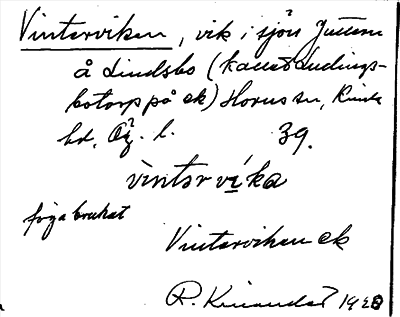 Vinterviken, vik i sjön Juttern
å Lindsbo (kallat Ludings-
botorp på ek) Horns sn, Kinda
hd, Ög. l. 39.
vìntərvíka
föga brukat
Vinterviken ek
R. Kinander 1928